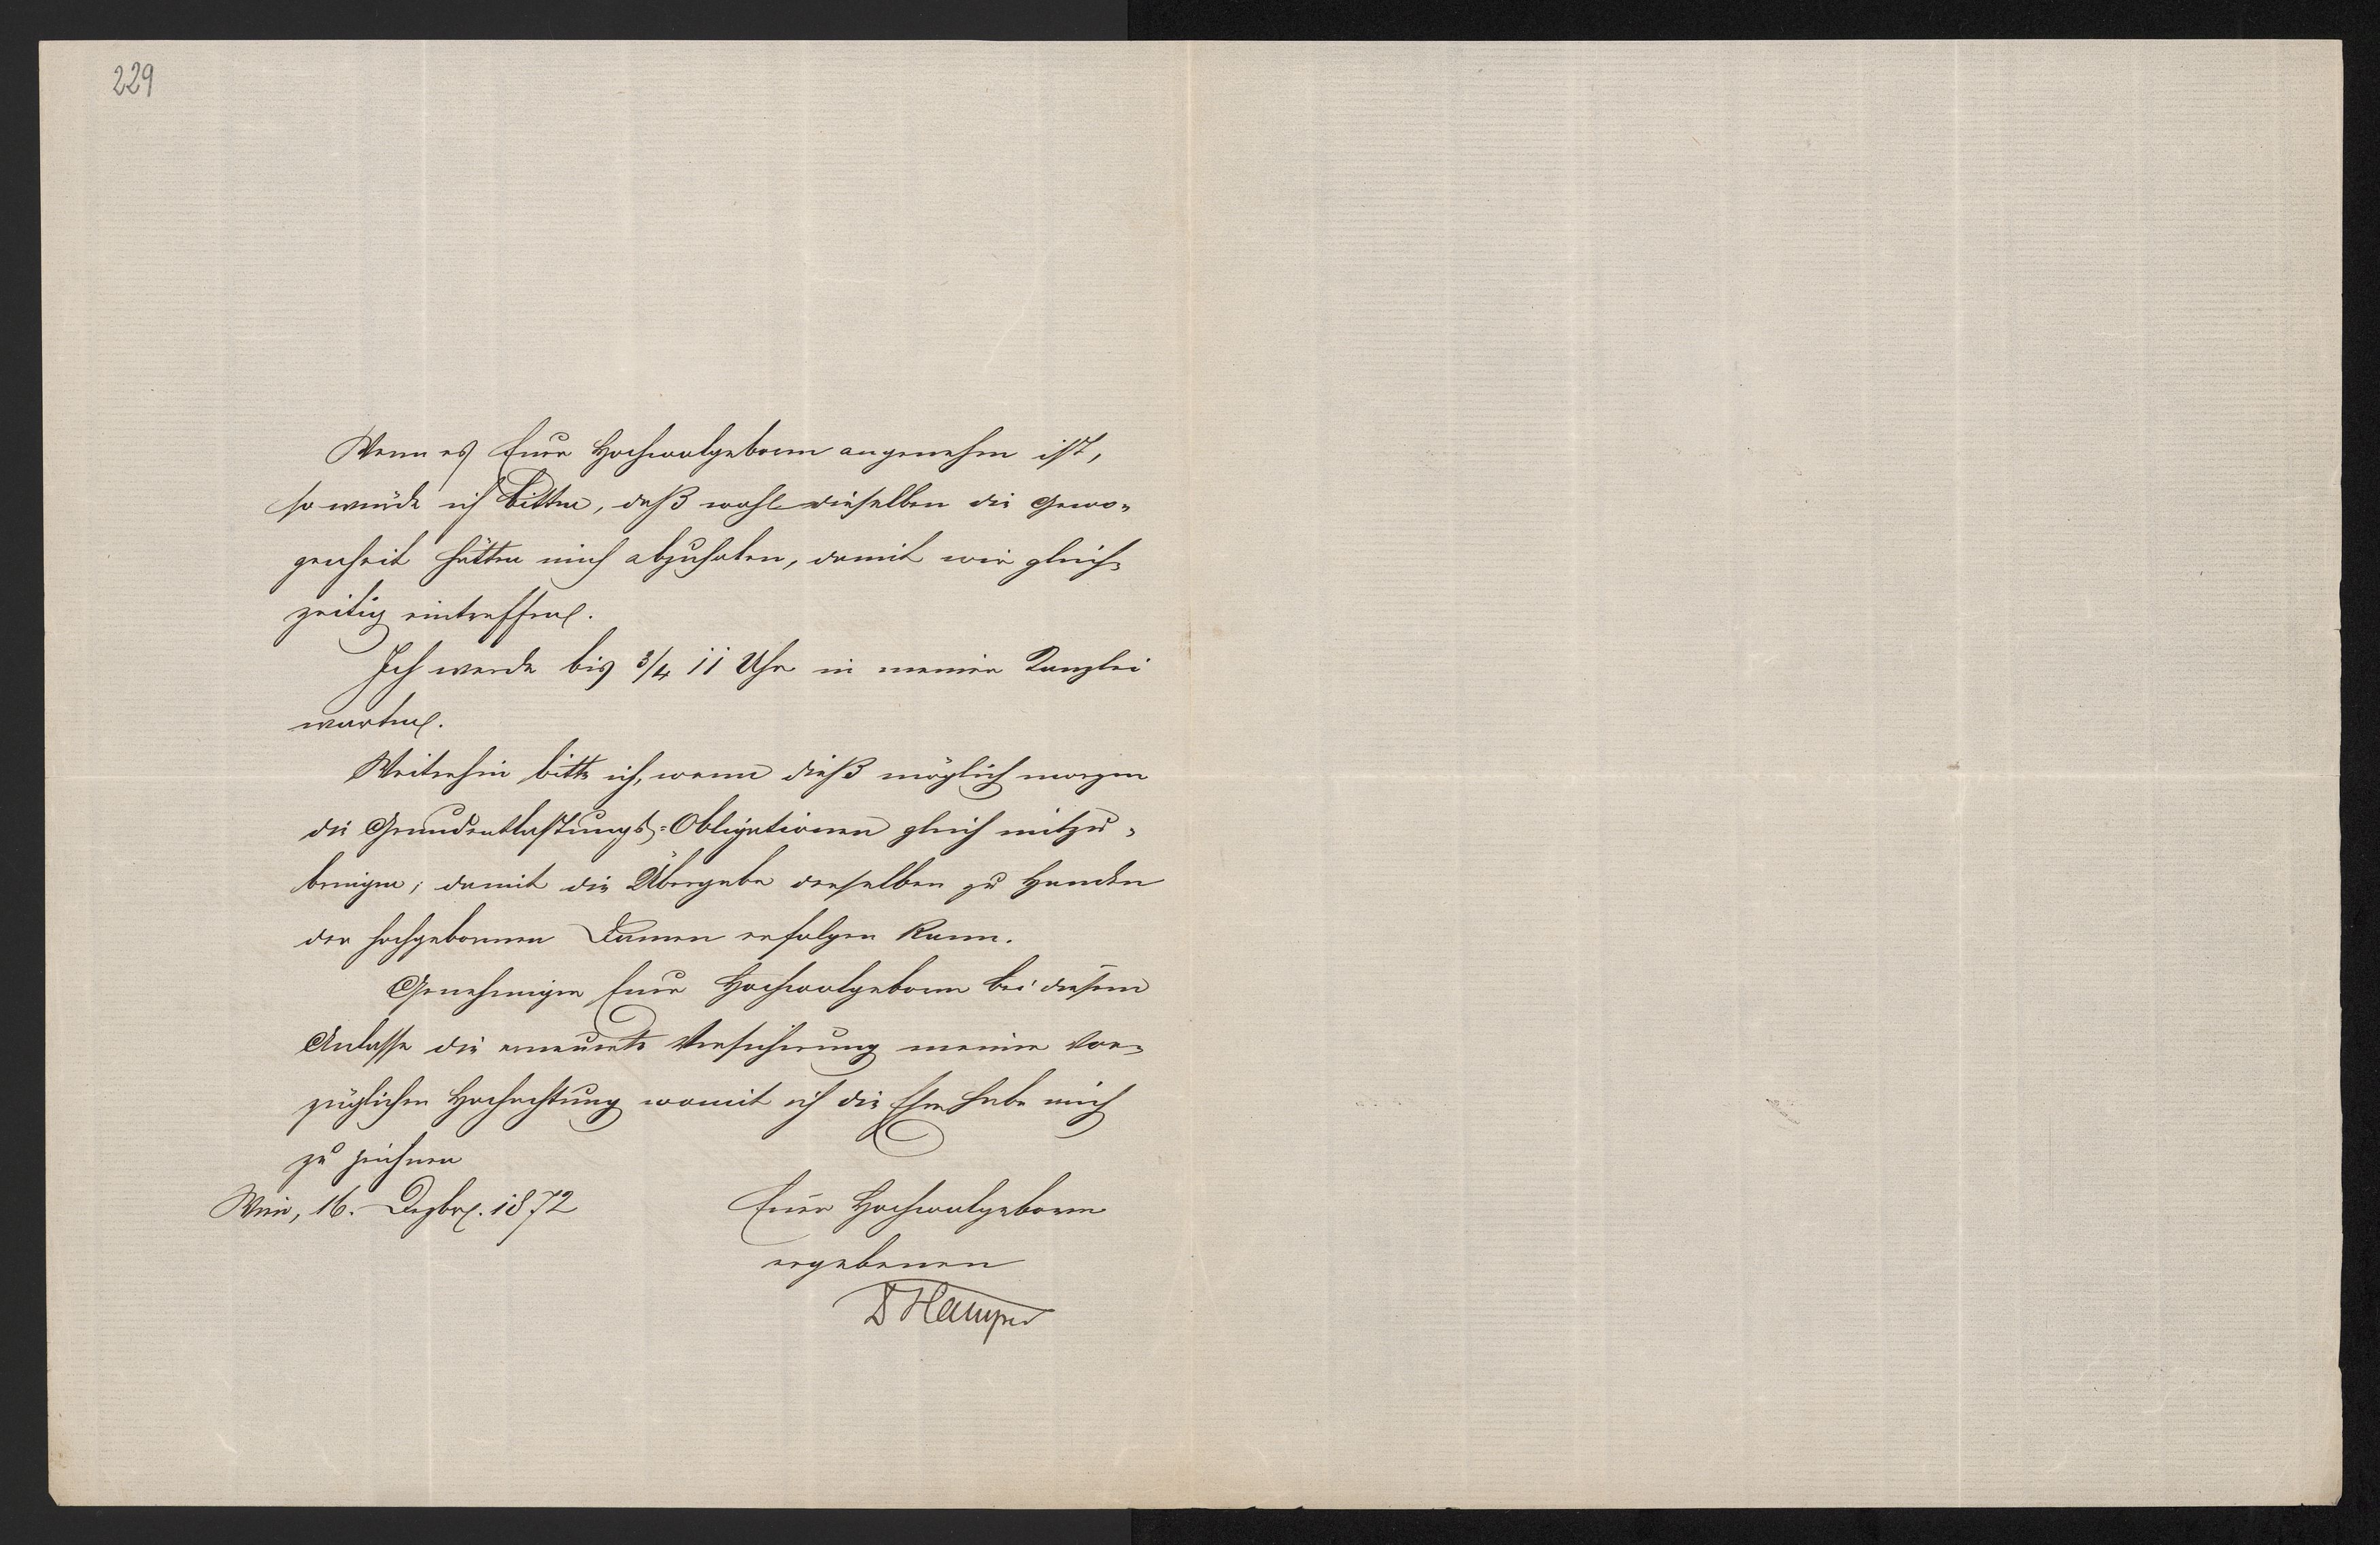 229
Wenn es Euer Hochwolgeboren angenehm ist,
so würde ich bitten, daß wohldieselben die Gewo-
genheit hätten mich abzuholen, damit wir gleich-
zeitig eintreffen.
Ich werde bis 3/4 11 Uhr in meiner Kanzlei
warten.
Weiterhin bitte ich, wenn dieß möglich morgen
die Grundentlastungs-Obligationen gleich mitzu-
bringen; damit die Übergabe derselben zu Handen
der hochgebornen Damen erfolgen kann.
Genehmigen Euer Hochwolgeboren bei diesem
Anlasse die erneuerte Versicherung meiner vor-
züglichen Hochachtung womit ich die Ehre habe mich
zu zeichnen
Wien, 16. Dezbr. 1872
Euer Hochwolgeboren
ergebenen